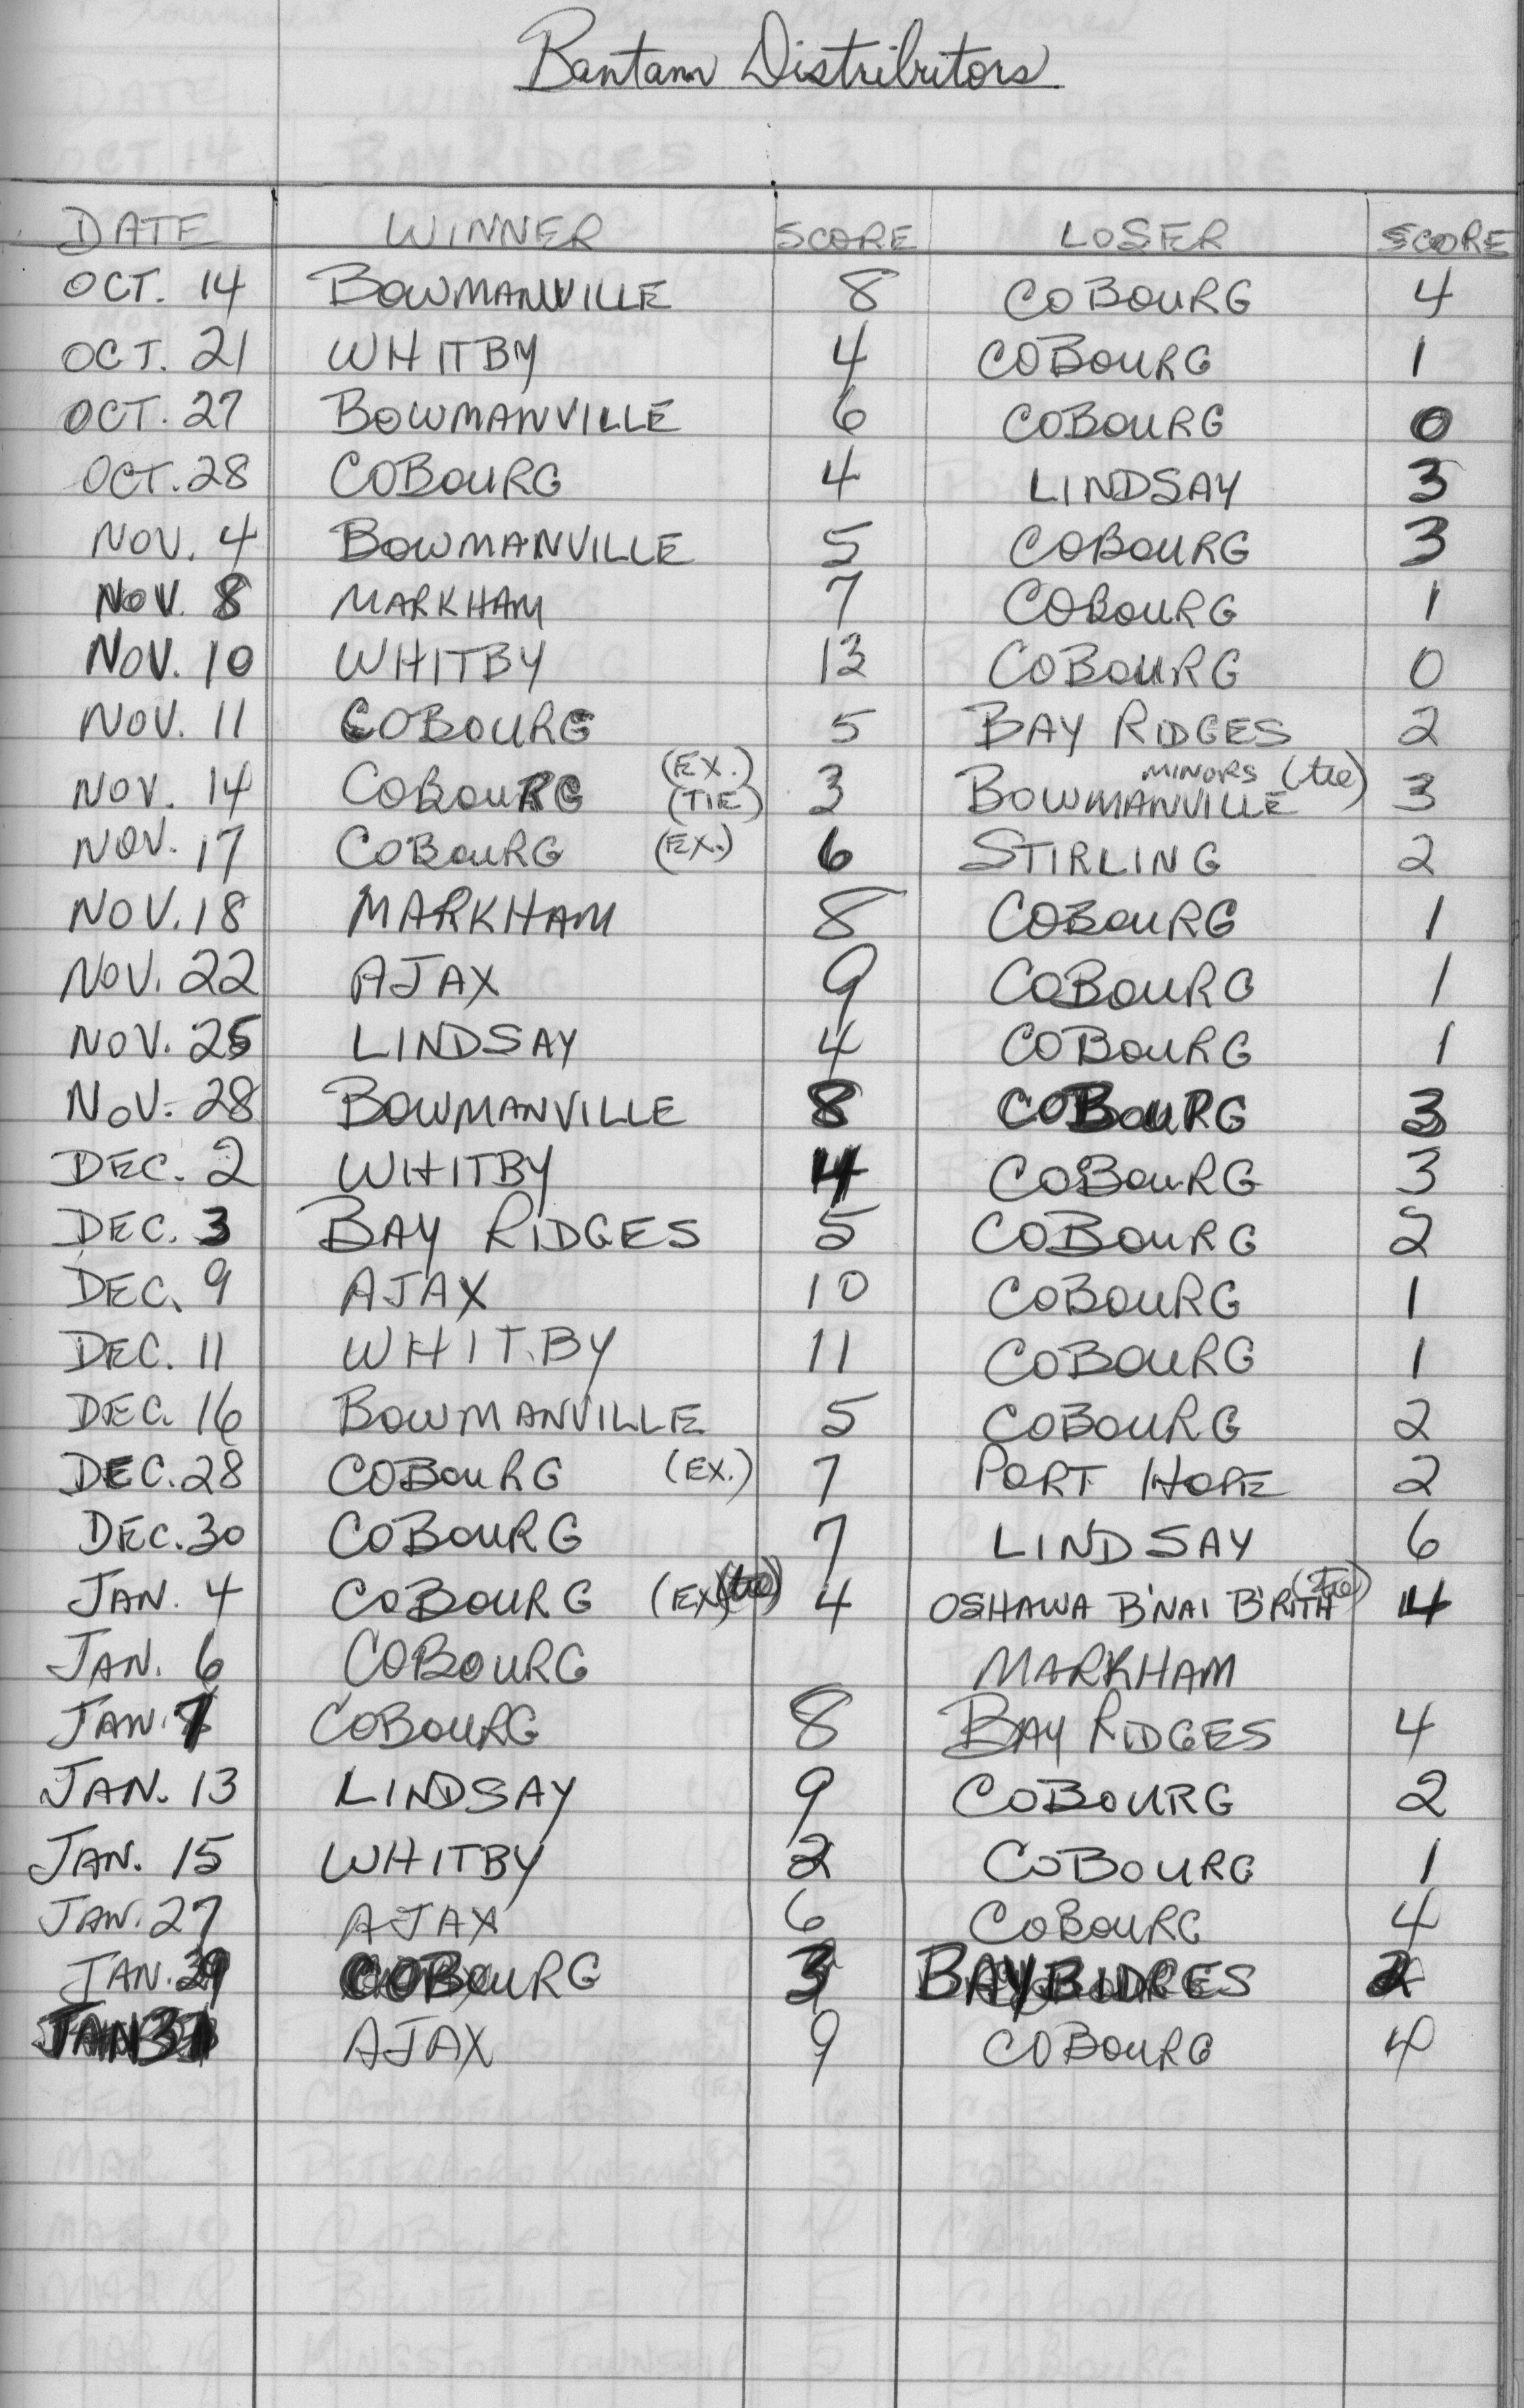 Bantam Distributors
DATE WINNER SCORE LOSER SCORE
OCT. 14 BOWMANVILLE 8 COBOURG 4
OCT. 21 WHITBY 4 COBOURG 1
OCT. 27 BOWMANVILLE 6 COBOURG 0
OCT. 28 COBOURG 4 LINDSAY 3
NOV. 4 BOWMANVILLE 5 COBOURG 3
NOV. 8 MARKHAM 7 COBOURG 1
NOV. 10 WHITBY 13 COBOURG 0
NOV. 11 COBOURG 5 BAY RIDGES 2
NOV. 14 COBOURG (EX.) (TIE) 3 BOWMANVILLE MINORS (tie) 3
NOV. 17 COBOURG (EX.) 6 STIRLING 2
NOV. 18 MARKHAM 8 COBOURG 1
NOV. 22 AJAX 9 COBOURG 1
NOV. 25 LINDSAY 4 COBOURG 1
NOV. 28 BOWMANVILLE 8 COBOURG 3
DEC. 2 WHITBY 4 COBOURG 3
DEC. 3 BAY RIDGES 5 COBOURG 2
DEC. 9 AJAX 10 COBOURG 1
DEC. 11 WHITBY 11 COBOURG 1
DEC. 16 BOWMANVILLE 5 COBOURG 2
DEC. 28 COBOURG (EX.) 7 PORT HOPE 2
DEC. 30 COBOURG 7 LINDSAY 6
JAN. 4 COBOURG (EX) (tie) 4 OSHAWA B'NAI B'RITH (tie) 4
JAN. 6 COBOURG MARKHAM
JAN. 7 COBOURG 8 BAY RIDGES 4
JAN. 13 LINDSAY 9 COBOURG 2
JAN. 15 WHITBY 2 COBOURG 1
JAN. 27 AJAX 6 COBOURG 4
JAN. COBOURG 3 BAY RIDGES 2
JAN 31 AJAX 9 COBOURG 4